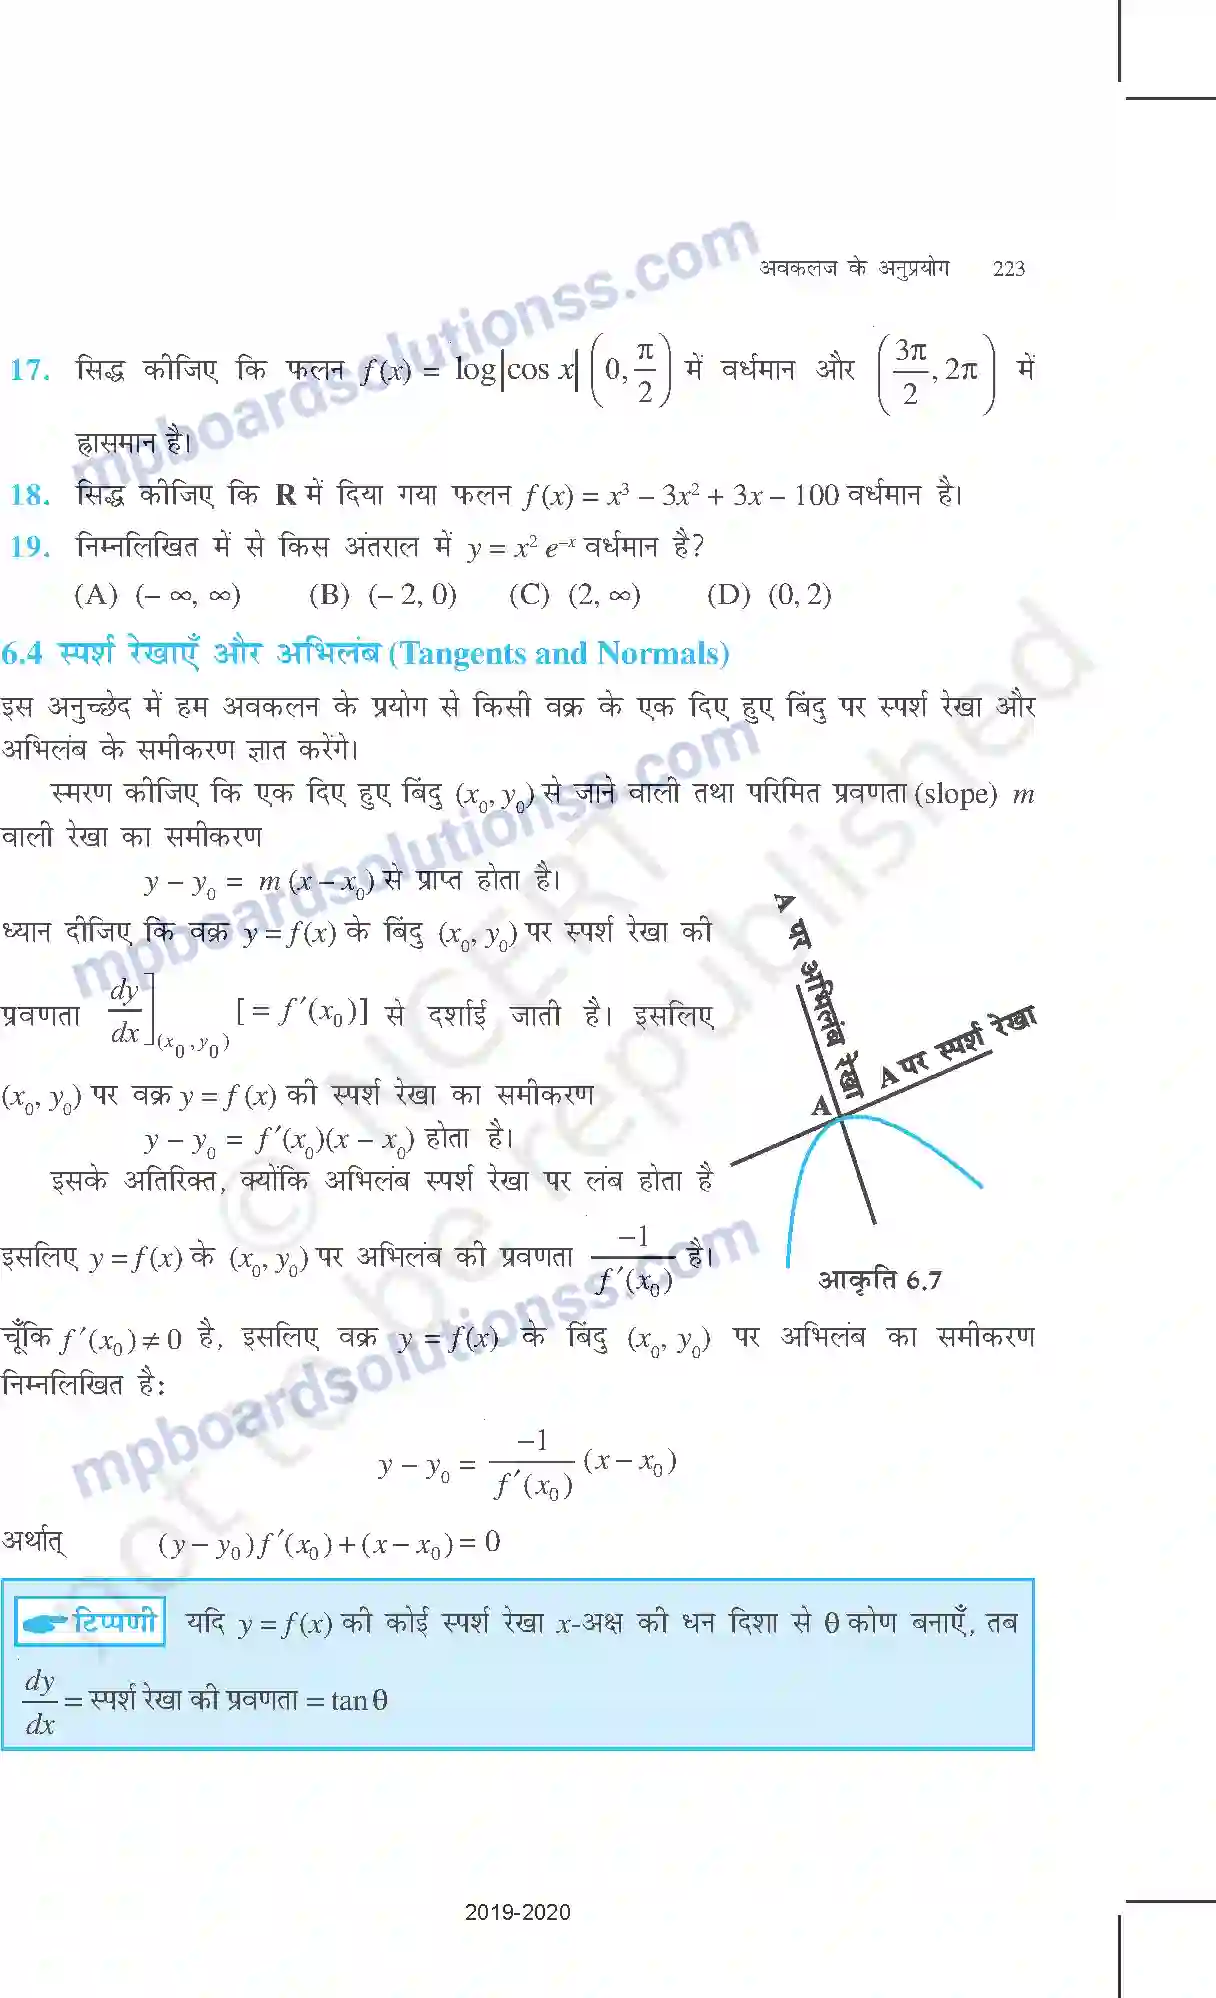 अवकलज के अनुप्रयोग 223
17. सिद्ध कीजिए कि फलन f(x) = log|cos x| (0, π/2) में वर्धमान और (3π/2, 2π) में
ह्रासमान है।
18. सिद्ध कीजिए कि R में दिया गया फलन f(x) = x³ – 3x² + 3x – 100 वर्धमान है।
19. निम्नलिखित में से किस अंतराल में y = x² e⁻ˣ वर्धमान है?
(A) (– ∞, ∞) (B) (– 2, 0) (C) (2, ∞) (D) (0, 2)
6.4 स्पर्श रेखाएँ और अभिलंब (Tangents and Normals)
इस अनुच्छेद में हम अवकलन के प्रयोग से किसी वक्र के एक दिए हुए बिंदु पर स्पर्श रेखा और
अभिलंब के समीकरण ज्ञात करेंगे।
स्मरण कीजिए कि एक दिए हुए बिंदु (x₀, y₀) से जाने वाली तथा परिमित प्रवणता (slope) m
वाली रेखा का समीकरण
y – y₀ = m (x – x₀) से प्राप्त होता है।
ध्यान दीजिए कि वक्र y = f(x) के बिंदु (x₀, y₀) पर स्पर्श रेखा की
प्रवणता dy/dx](x₀, y₀) [= f′(x₀)] से दर्शाई जाती है। इसलिए
(x₀, y₀) पर वक्र y = f (x) की स्पर्श रेखा का समीकरण
y – y₀ = f′(x₀)(x – x₀) होता है।
इसके अतिरिक्त, क्योंकि अभिलंब स्पर्श रेखा पर लंब होता है
इसलिए y = f(x) के (x₀, y₀) पर अभिलंब की प्रवणता –1/f′(x₀) है।
A पर अभिलंब रेखा
A पर स्पर्श रेखा
A
आकृति 6.7
चूँकि f′(x₀) ≠ 0 है, इसलिए वक्र y = f(x) के बिंदु (x₀, y₀) पर अभिलंब का समीकरण
निम्नलिखित है:
y – y₀ = –1/f′(x₀) (x – x₀)
अर्थात् (y – y₀) f′(x₀) + (x – x₀) = 0
टिप्पणी यदि y = f(x) की कोई स्पर्श रेखा x-अक्ष की धन दिशा से θ कोण बनाएँ, तब
dy/dx = स्पर्श रेखा की प्रवणता = tan θ
2019-2020
mpboardsolutionss.com
mpboardsolutionss.com
mpboardsolutionss.com
© NCERT
not to be republished